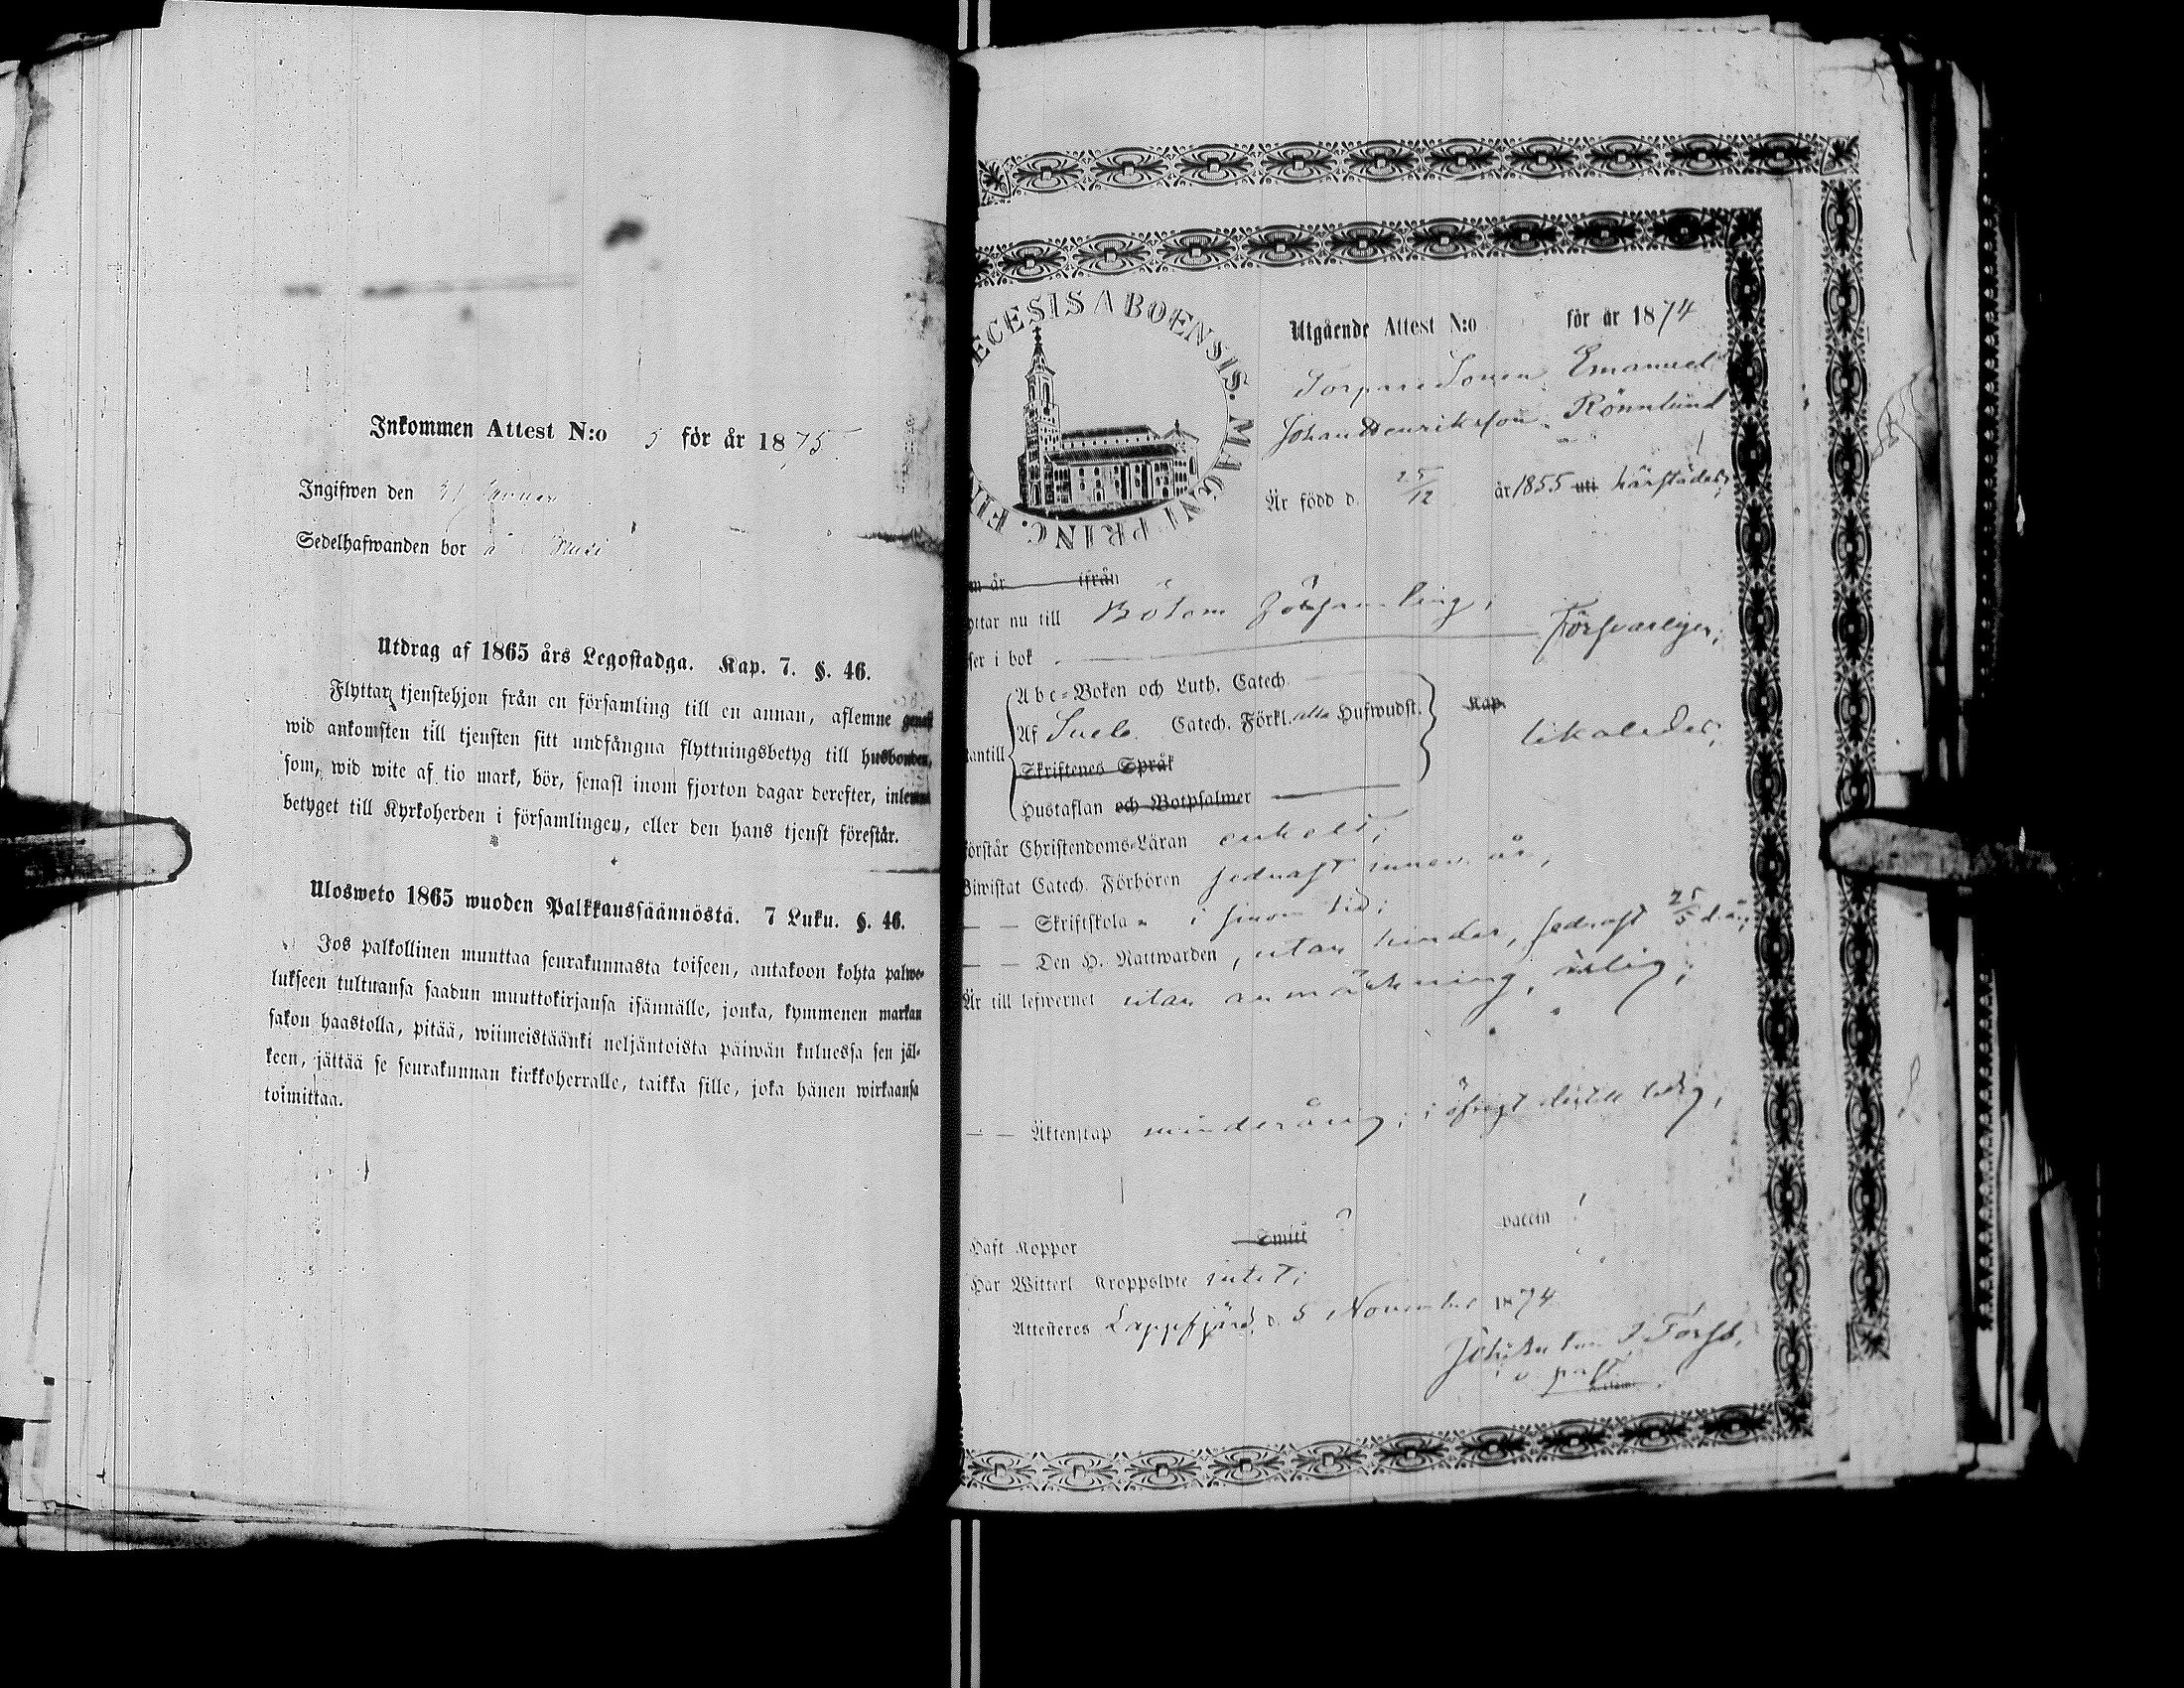 Inkommen Attest N:o 5 för år 1875
Ingifwen den 31 Januari
Sedelhafwanden bor å
Utdrag af 1865 års Legostadga. Kap. 7. §. 46.
Flyttar tjenstehjon från en församling till en annan, aflemne genast
wid ankomsten till tjensten sitt undfångna flyttningsbetyg till husbonden,
som, wid wite af tio mark, bör, senast inom fjorton dagar derefter, inlemna
betyget till Kyrkoherden i församlingen, eller den hans tjenst förestår.
Ulosweto 1865 wuoden Palkkaussäännöstä. 7 Luku. §. 46.
Jos palkollinen muuttaa seurakunnasta toiseen, antakoon kohta palwe-
lukseen tultuansa saadun muuttokirjansa isännälle, jonka, kymmenen markan
sakon haastolla, pitää, wiimeistäänki neljäntoista päiwän kuluessa sen jäl-
keen, jättää se seurakunnan kirkkoherralle, taikka sille, joka hänen wirkaansa
toimittaa.
ECESIS ABOENSIS. MAGNI PRINC. FIN
Utgående Attest N:o för år 1874
Torparesonen Emanuel
Johan Henriksson Rönnlund
Är född d. 25/12 år 1855 uti härstädes;
m år ifrån
yttar nu till Bötom församling;
ser i bok Försvarligen;
Abc-Boken och Luth. Catech.
Af Sveb. Catech. Förkl. alla Hufwudst. Kap. likaledes;
antill
Skriftenes Språk
Hustaflan och Botpsalmer
örstår Christendoms-Läran enkelt;
Biwistat Catech. Förhören sednast innev. år;
— — Skriftskola i sinom tid;
— — Den H. Nattwarden, utan hinder, sednast 25/5 d. å.;
Är till lefwernet utan anmärkning, ärlig;
— — Äktenskap minderårig; i öfrigt ledig;
Haft Koppor Smitt ? vaccin ?
Har Witterl. Kroppslyte intet;
Attesteres Lappfjärd, d. 5 November 1874